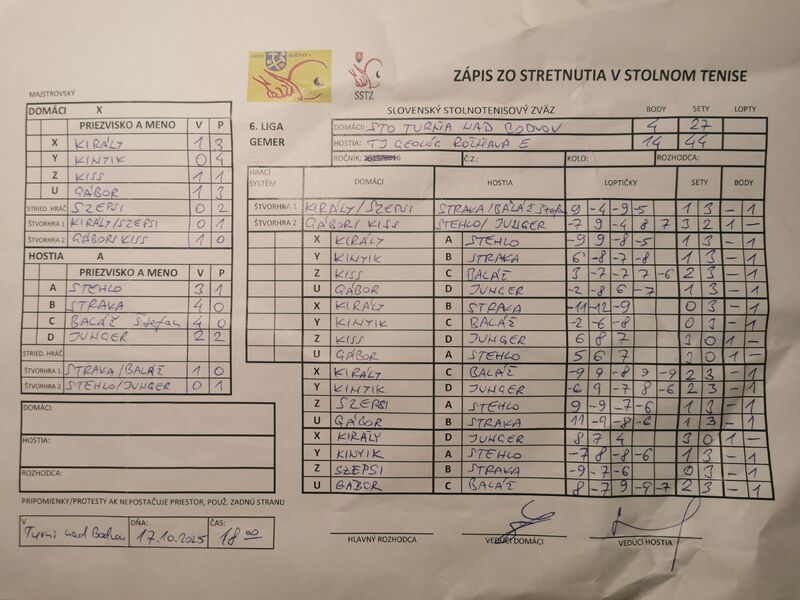 SSTZ
ZÁPIS ZO STRETNUTIA V STOLNOM TENISE
MAJSTROVSKÝ
DOMÁCI X
PRIEZVISKO A MENO V P
X KIRÁLY 1 3
Y KINYIK 0 4
Z KISS 1 1
U GÁBOR 1 3
STRIED. HRÁČ SZEPSI 0 2
ŠTVORHRA 1 KIRÁLY/SZEPSI 0 1
ŠTVORHRA 2 GÁBOR/KISS 1 0
HOSTIA A
PRIEZVISKO A MENO V P
A STEHLO 3 1
B STRAKA 4 0
C BALÁŽ Štefan 4 0
D JUNGER 2 2
STRIED. HRÁČ
ŠTVORHRA 1 STRAKA/BALÁŽ 1 0
ŠTVORHRA 2 STEHLO/JUNGER 0 1
DOMÁCI:
HOSTIA:
ROZHODCA:
PRIPOMIENKY/PROTESTY AK NEPOSTAČUJE PRIESTOR, POUŽ. ZADNÚ STRANU
V DŇA: ČAS:
Turni nad Bodvou 17.10.2025 18 00
SLOVENSKÝ STOLNOTENISOVÝ ZVÄZ BODY SETY LOPTY
6. LIGA DOMÁCI: STO TURŇA NAD BODVOU 4 27
GEMER HOSTIA: TJ GEOLÓG ROŽŇAVA E 14 44
ROČNÍK: Č.Z.: KOLO: ROZHODCA:
HRACÍ SYSTÉM DOMÁCI HOSTIA LOPTIČKY SETY BODY
ŠTVORHRA 1 KIRÁLY/SZEPSI STRAKA/BALÁŽ Štefan 9 -4 -9 -5 1 3 - 1
ŠTVORHRA 2 GÁBOR/KISS STEHLO/JUNGER -7 9 -4 8 7 3 2 1 -
X KIRÁLY A STEHLO -9 9 -8 -5 1 3 - 1
Y KINYIK B STRAKA 6 -8 -7 -8 1 3 - 1
Z KISS C BALÁŽ 3 -7 -7 7 -6 2 3 - 1
U GÁBOR D JUNGER -2 -8 6 -7 1 3 - 1
X KIRÁLY B STRAKA -11 -12 -9 0 3 - 1
Y KINYIK C BALÁŽ -2 -6 -8 0 3 - 1
Z KISS D JUNGER 6 8 7 3 0 1 -
U GÁBOR A STEHLO 5 6 7 3 0 1 -
X KIRÁLY C BALÁŽ -9 9 -8 9 -9 2 3 - 1
Y KINYIK D JUNGER -6 9 -7 8 -6 2 3 - 1
Z SZEPSI A STEHLO 9 -9 -7 -6 1 3 - 1
U GÁBOR B STRAKA 11 -9 -8 -6 1 3 - 1
X KIRÁLY D JUNGER 8 7 4 3 0 1 -
Y KINYIK A STEHLO -7 8 -8 -6 1 3 - 1
Z SZEPSI B STRAKA -9 -7 -6 0 3 - 1
U GÁBOR C BALÁŽ 8 -7 9 -9 -7 2 3 - 1
HLAVNÝ ROZHODCA VEDÚCI DOMÁCI VEDÚCI HOSTIA